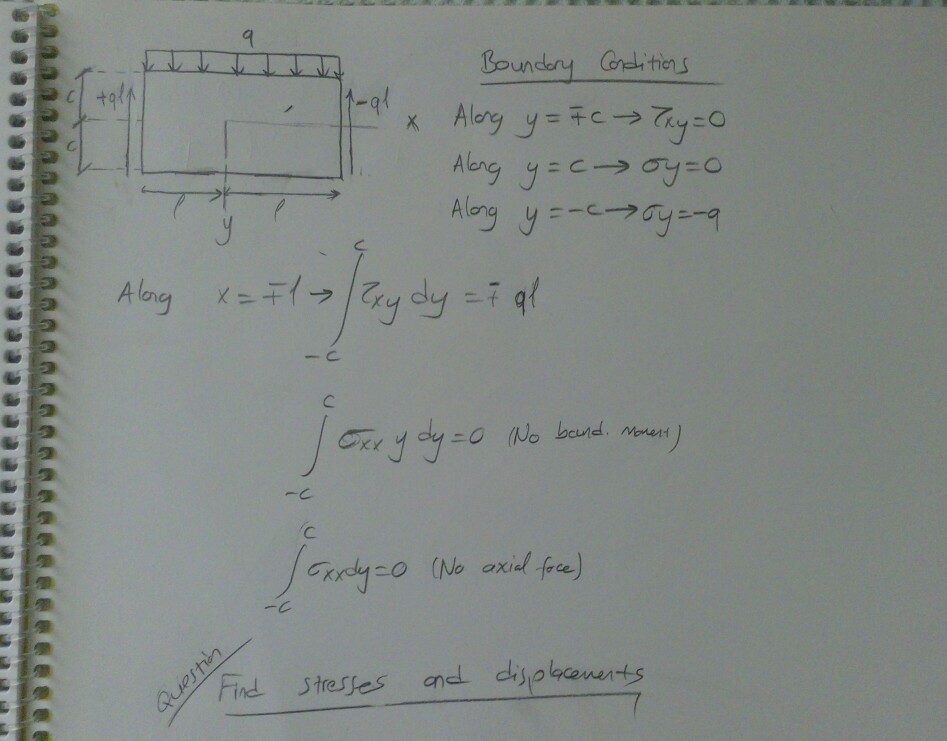 q
Boundary Conditions
c +ql -ql x
c
l l
y
Along y = ∓c → τxy = 0
Along y = c → σy = 0
Along y = -c → σy = -q
Along x = ∓l → ∫_{-c}^{c} τxy dy = ∓ ql
∫_{-c}^{c} σxx y dy = 0 (No bend. moment)
∫_{-c}^{c} σxx dy = 0 (No axial force)
Question
Find stresses and displacements